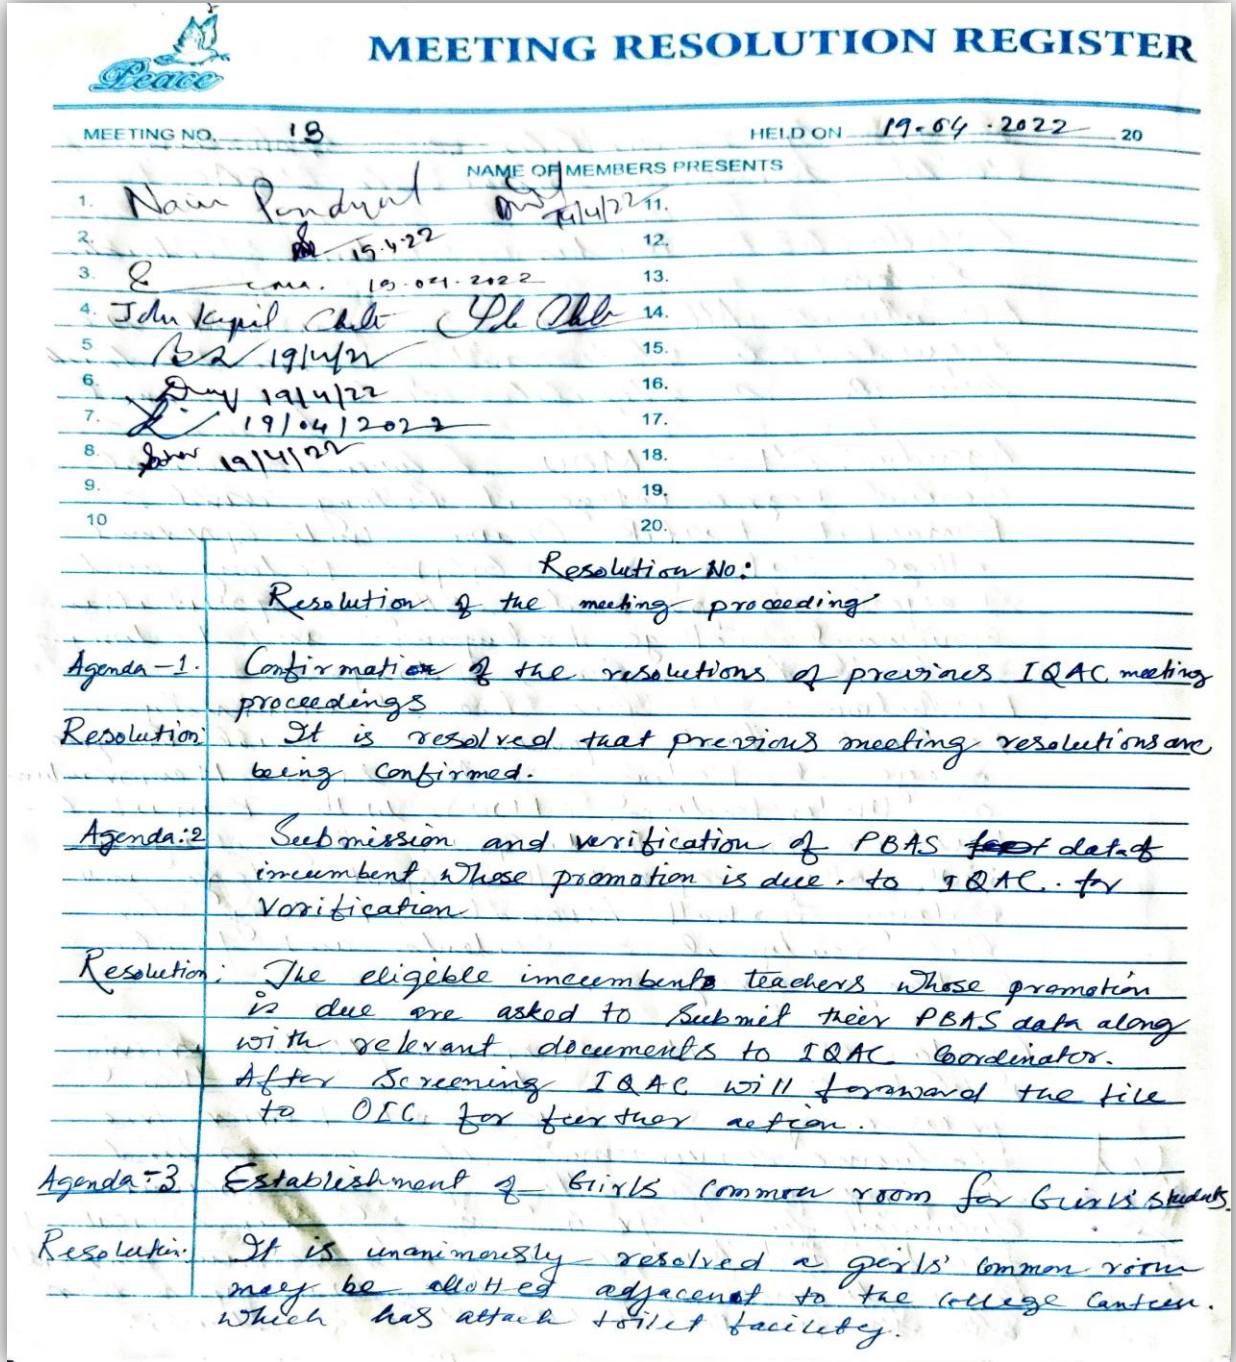 Peace
MEETING RESOLUTION REGISTER
MEETING NO. 18 HELD ON 19-04-2022 20
NAME OF MEMBERS PRESENTS
1. 14/4/22 11.
2. 15.4.22 12.
3. 19.04.2022 13.
4. John Kapil 14.
5 19/4/22 15.
6. 19/4/22 16.
7. 19/04/2022 17.
8. 19/4/22 18.
9. 19.
10 20.
Resolution No:
Resolution of the meeting proceeding
Agenda-1. Confirmation of the resolutions of previous IQAC meeting
proceedings
Resolution: It is resolved that previous meeting resolutions are
being confirmed.
Agenda:2 Submission and verification of PBAS data of
incumbent whose promotion is due. to IQAC. for
Vorification
Resolution: The eligible imcumbents teachers whose promotion
is due are asked to submit their PBAS data along
with relevant documents to IQAC Coordinator.
After Screening IQAC will forward the file
to OIC. for further action.
Agenda-3 Establishment of Girls' Common room for Girls' students.
Resolution: It is unanimously resolved a girls' common room
may be allotted adjacent to the college Canteen.
which has attach toilet facility.